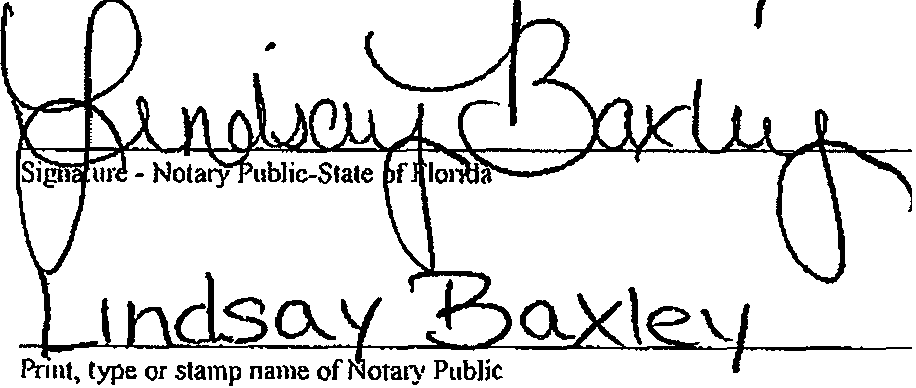 Lindsay Baxley
Signature - Notary Public-State of Florida
Lindsay Baxley
Print, type or stamp name of Notary Public